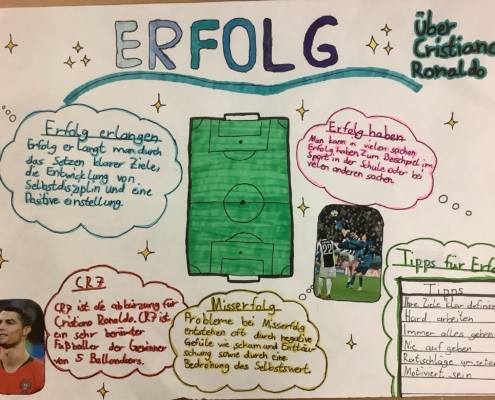 ERFOLG
Über
Cristiano
Ronaldo
Erfolg erlangen
Erfolg erlangt man durch
das Setzen klarer Ziele,
die Entwicklung von
Selbstdisziplin und eine
Positive einstellung.
Erfolg haben
Man kann in vielen sachen
Erfolg haben Zum Beschpiel im
Sport in der Schule oder bei
vielen anderen sachen.
CR7
CR7 ist die abkürzung für
Cristiano Ronaldo. CR7 ist
ein sehr berümter
Fußballer der Gewinner
von 5 Ballondors.
Misserfolg
Probleme bei Misserfolg
entstehen oft durch negative
Gefüle wie scham und Enttäu-
schung sowie durch eine
Bedrohung des Selbstwert.
Tipps für Erfo
Tipps
Ihre Ziele klar definie
Hard arbeiten
Immer alles geben
Nie auf geben
Ratschläge umsetzen
Motiviert sein
22